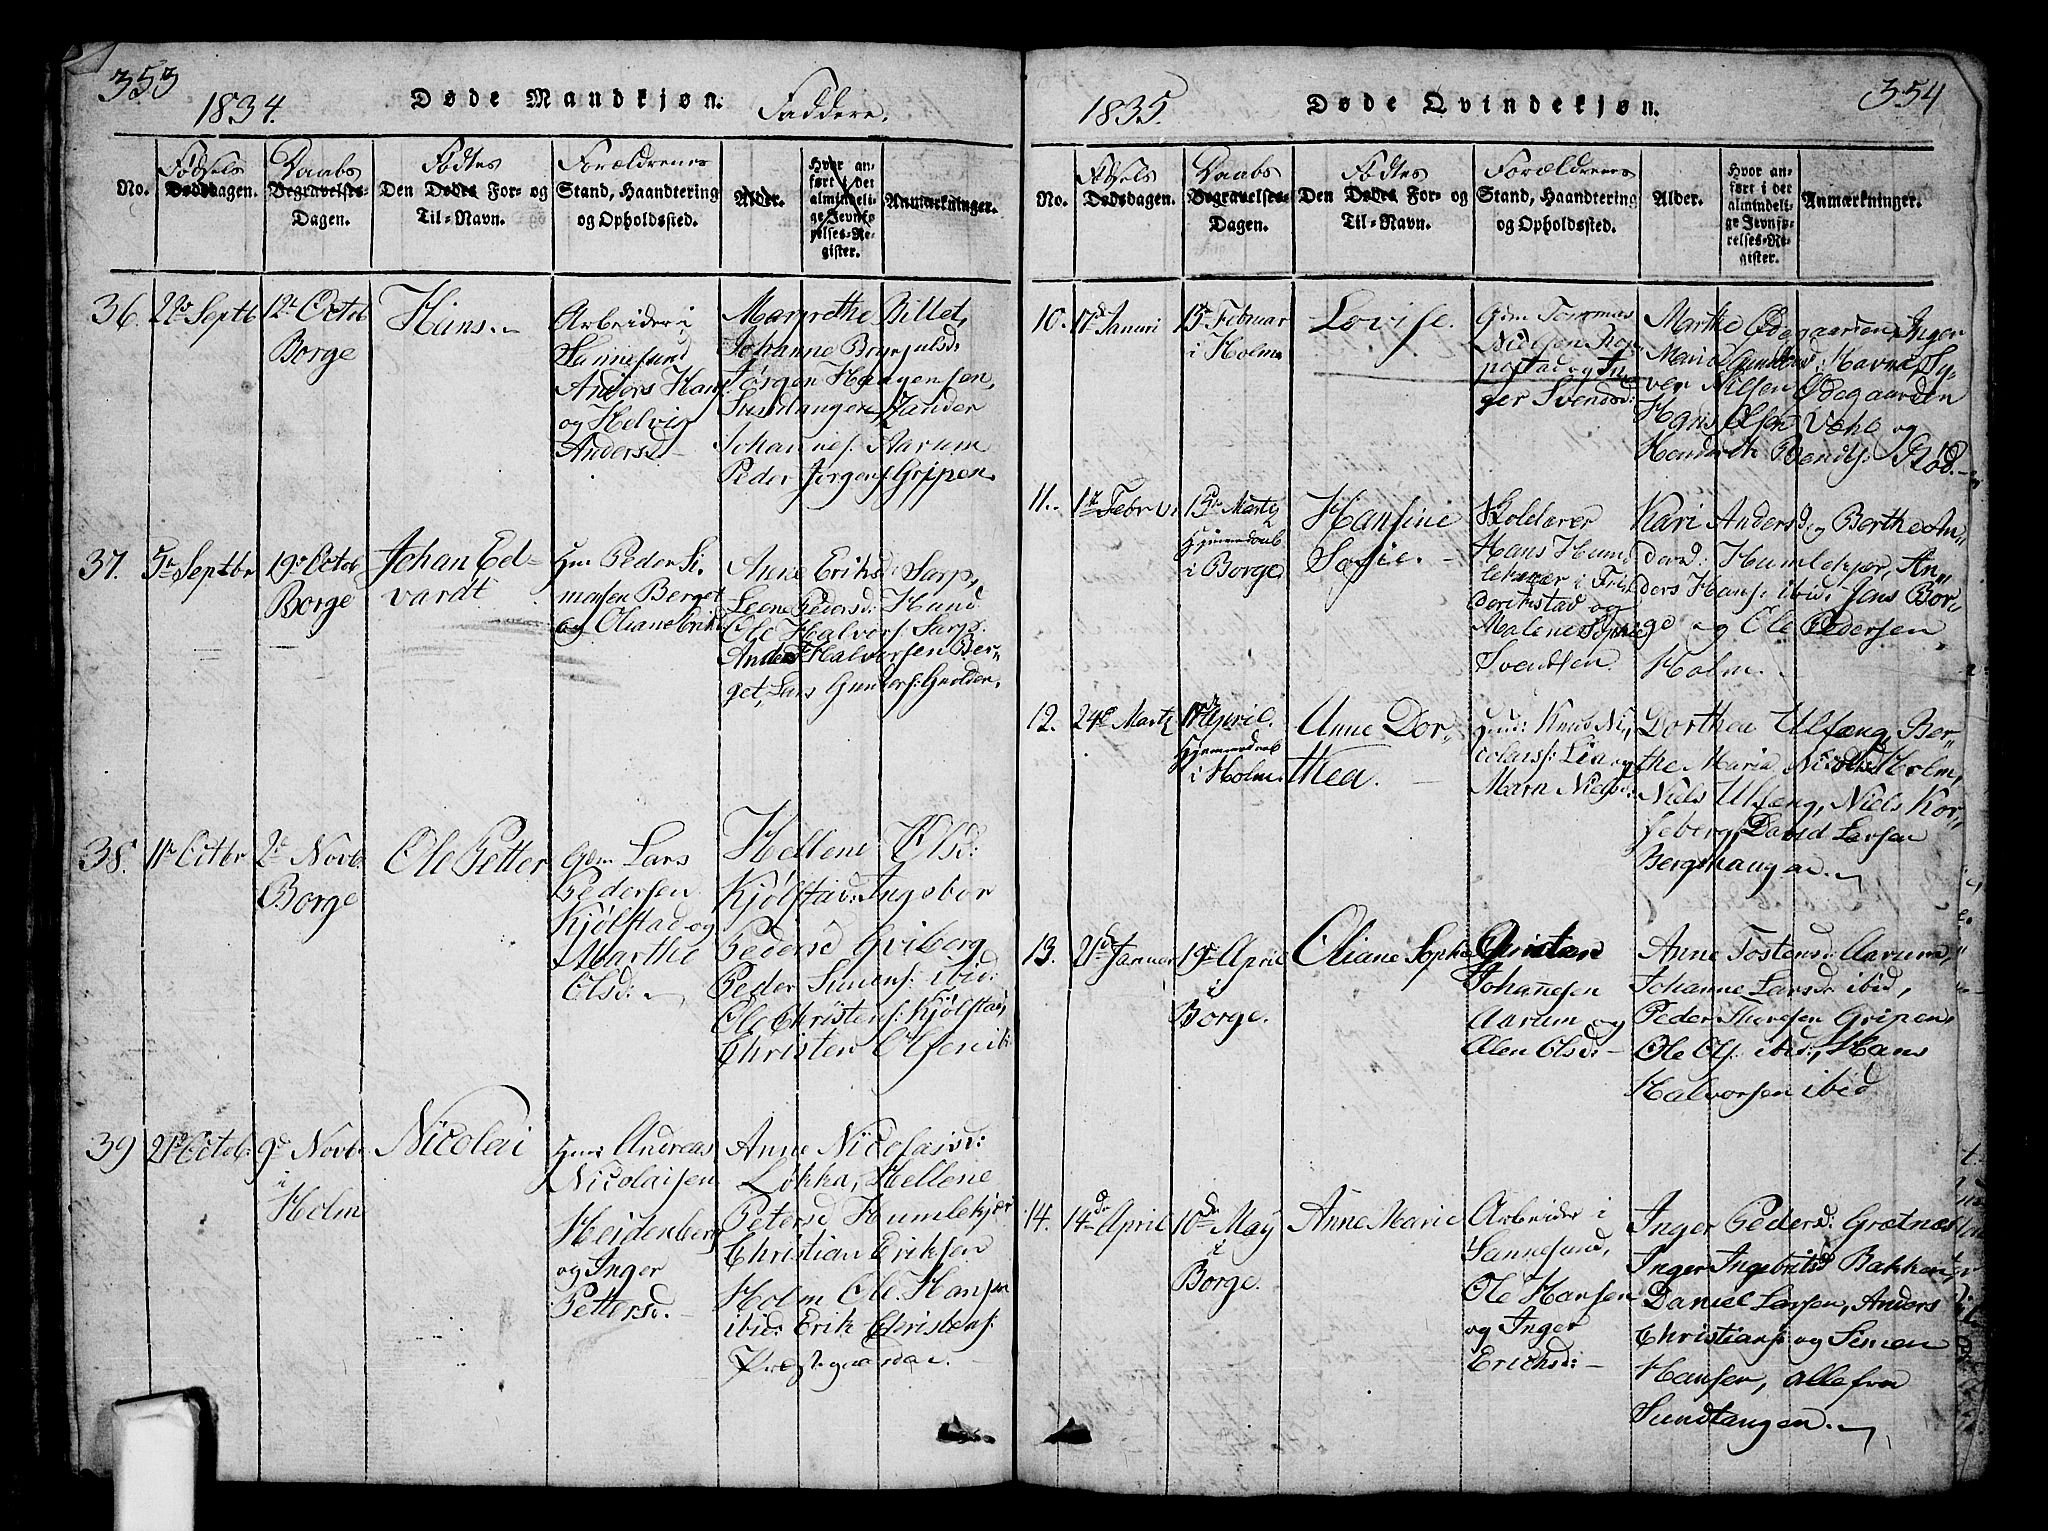 353
1834.
Døde Mandkjøn.
Faddere.
Fødsels
Daabs
Fødtes
Forældrenes
No.
Dødsdagen.
Begravelses-
Dagen.
Den Dødes For- og
Til-Navn.
Stand, Haandtering
og Opholdssted.
Alder.
Hvor an-
ført i det
almindeli-
ge Jevnfø-
relses-Re-
gister.
Anmærkninger.
36.
22 Septb
12te Octob
Borge
Hans.
Arbeider i
Sannesund
Anders Hans
og Helvig
Andersd
Margrethe Billet,
Johanne
Jørgen Haagensen,
Sundtangen, Zander
Johannes. Aarum
Peder Jørgens. Grippen.
37.
5te Septbr
19de Octob
Borge
Johan Ed-
vardt
Hm Peder Si-
monsen Berget
og Oliane Erik
Anne Eriksd: Sarp,
Leene Pedersd: Hund
Ole Halvors: Sarp.
Anders Halvorsen Ber-
get, Lars Gunders:
38.
11te Octbr
2de Novb.
Borge
Ole Petter
Gdm Lars
Pedersen
Kjølstad og
Marthe
Olsd:
Hellene Olsd:
Kjølstad: Ingebor
Pedersd Gviberg
Peder Simens: ibid:
Ole Christens: Kjølstad,
Christen Olsen ib:
39
21de Octob:
9de Novb.
i
Holm
Nicolai
Hm: Andreas
Nicolaisen
Heidenberg
og Inger
Pettersd.
Anne Nicolaisd:
Løkka, Hellene
Petersd Humlekjær
Christian Eriksen
Holm Ole Hansen
ibid: Erik Christens:
Præstegaarden.
354
1835.
Døde Qvindekjøn.
Fødsels
Daabs
Fødtes
Forældrenes
No.
Dødsdagen.
Begravelses-
Dagen.
Den Dødes For- og
Til-Navn.
Stand, Haandtering
og Opholdssted.
Alder.
Hvor an-
ført i det
almindeli-
ge Jevnfø-
relses-Re-
gister.
Anmærkninger.
10.
17d Januri
15de Februar
i Holm
Lovise.
Gdm Tommas
Nilsen Rop-
postad og In-
ger Svendsd:
Marthe Ødegaarden, Inger
Maria Havnø, Sy-
ver Nilsen Ødegaarden
Hans Olsen Væhe og
Hendrik Bendts: Rød.
11.
1te Febrvi
15de Martz
Hjemmedøbt
i Borge
Hansine
Sofie.
Skolelærer
Hans Hum-
lekjær i Fri-
derikstad og
Malene Sophie
Svendsen
Kari Andersd og Berthe An-
dersd: Humlekjær, An-
ders Hans: ibid: Jens Bor-
ge og Ole Pedersen
Holm.
12.
24de Martz
17de April.
Hjemmedøbt
i Holm.
Anne Dor-
thea.
Huusm: Knud Ni-
colais: Lia og
Maren Nielsd:
Dorthea Ulfeng, Ber-
the Maria Nielsd Holm,
Niels Ulfeng, Niels Kor-
seberg, David Larsen
Bergshaugen.
13.
21de Januar
19de April
i
Borge.
Oliane Sophie
Christen
Johannesen
Aarum og
Ælen Olsd:
Anne Tostensd: Aarum,
Johanne Larsd: ibid,
Peder Thoresen Gripen,
Ole Ols. ibid:, Hans
Halvorsen ibid
14.
14de April
10de May
i
Borge.
Anne Marie
Arbeider i
Sannesund,
Ole Hansen
og Inger
Ericksd:
Inger Pedersd: Grætnes
Inger Ingebritsd Bakken,
Daniel Larsen, Anders
Christians: og Simen
Hansen, alle fra
Sundtangen.